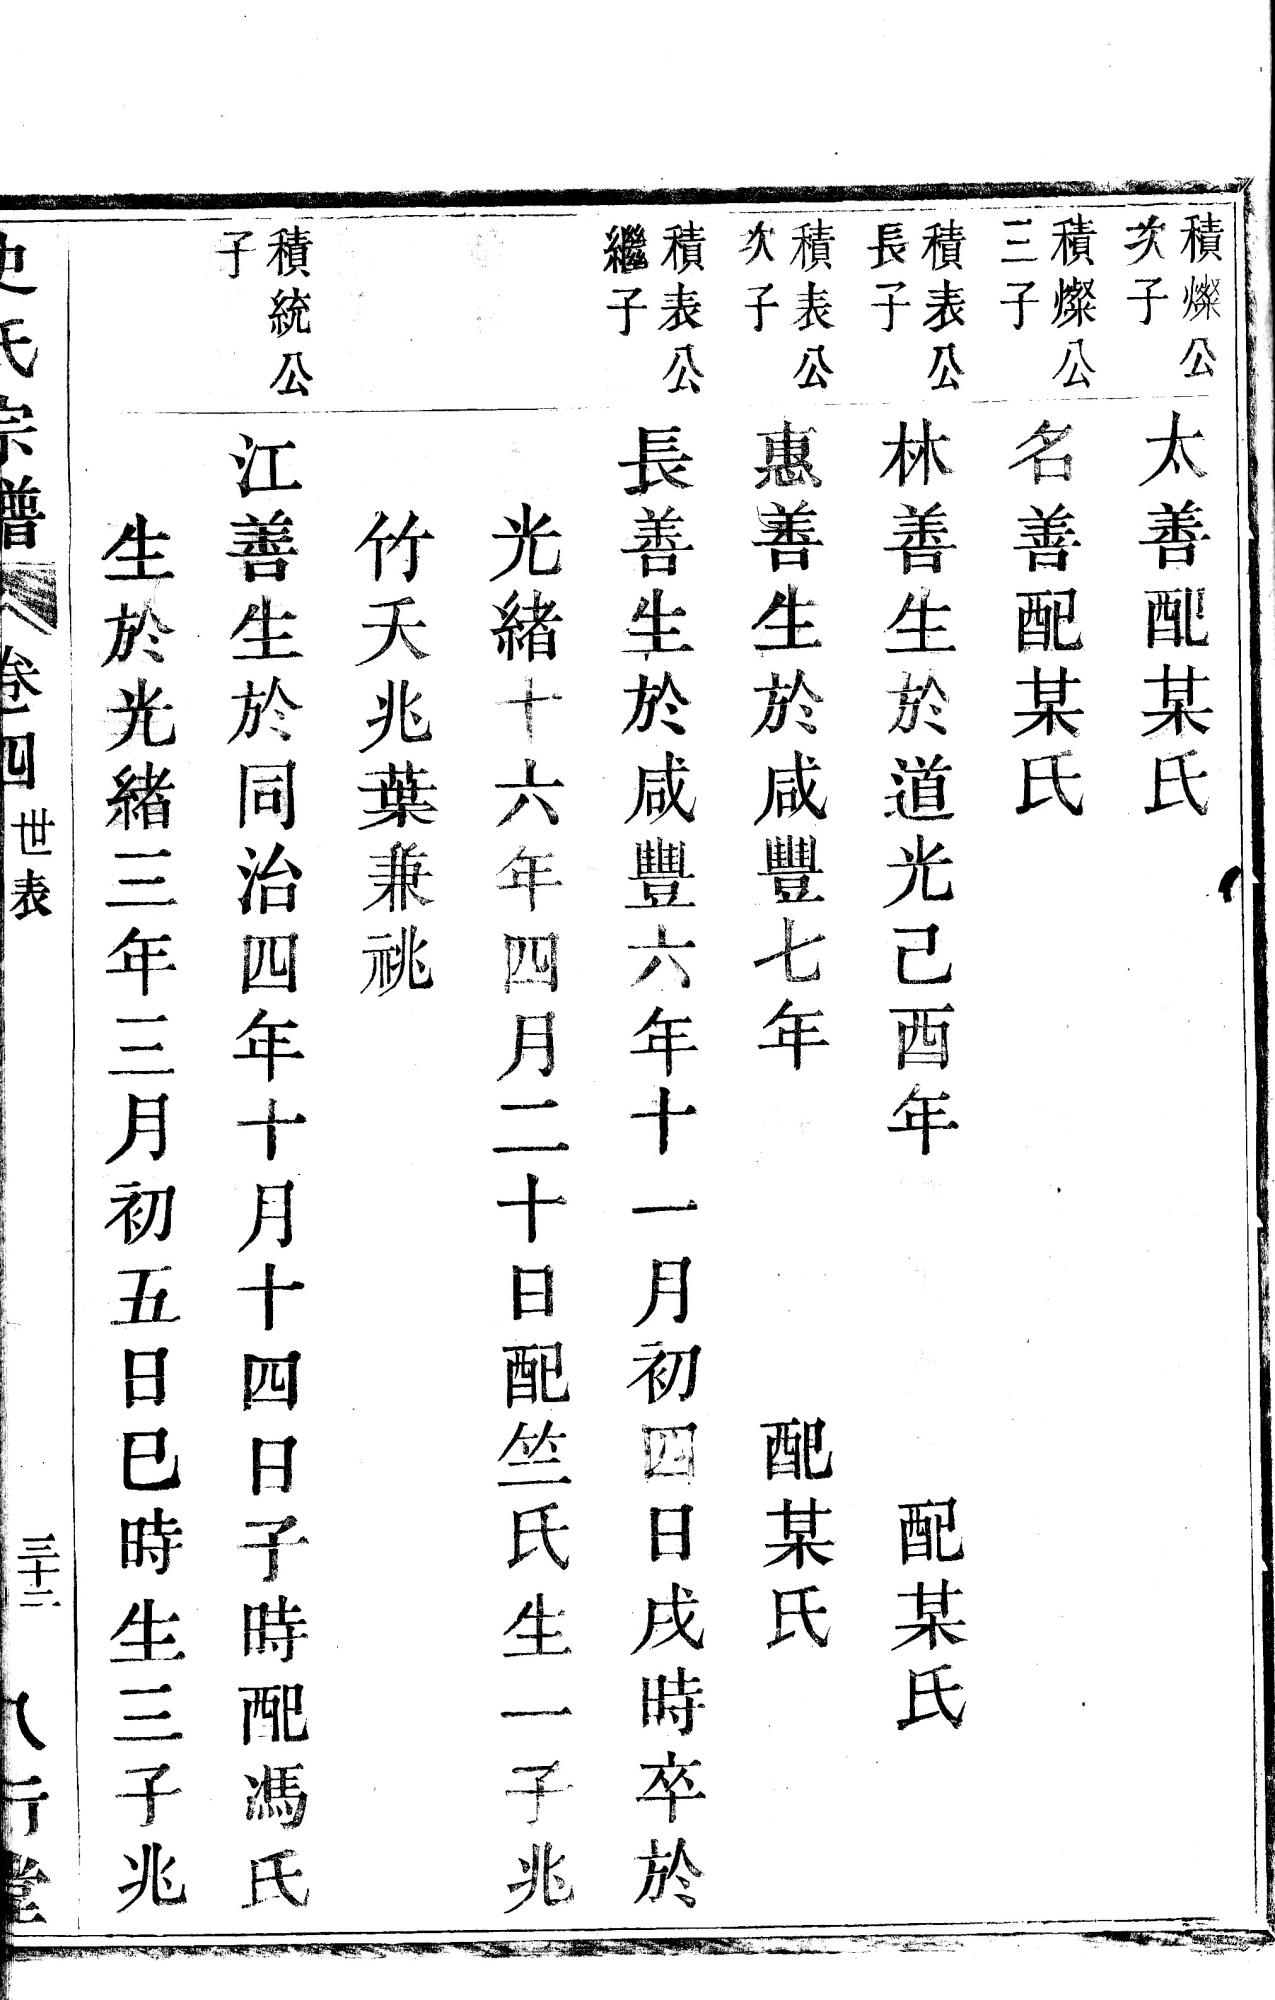 積燦公
次子
太善配某氏
積燦公
三子
名善配某氏
積表公
長子
林善生於道光己酉年 配某氏
積表公
次子
惠善生於咸豐七年 配某氏
積表公
繼子
長善生於咸豐六年十一月初四日戌時卒於
光緒十六年四月二十日配竺氏生一子兆
竹夭兆葉兼祧
積統公
子
江善生於同治四年十月十四日子時配馮氏
生於光緒三年三月初五日巳時生三子兆
史氏宗譜 卷四 世表 三十二 八行堂